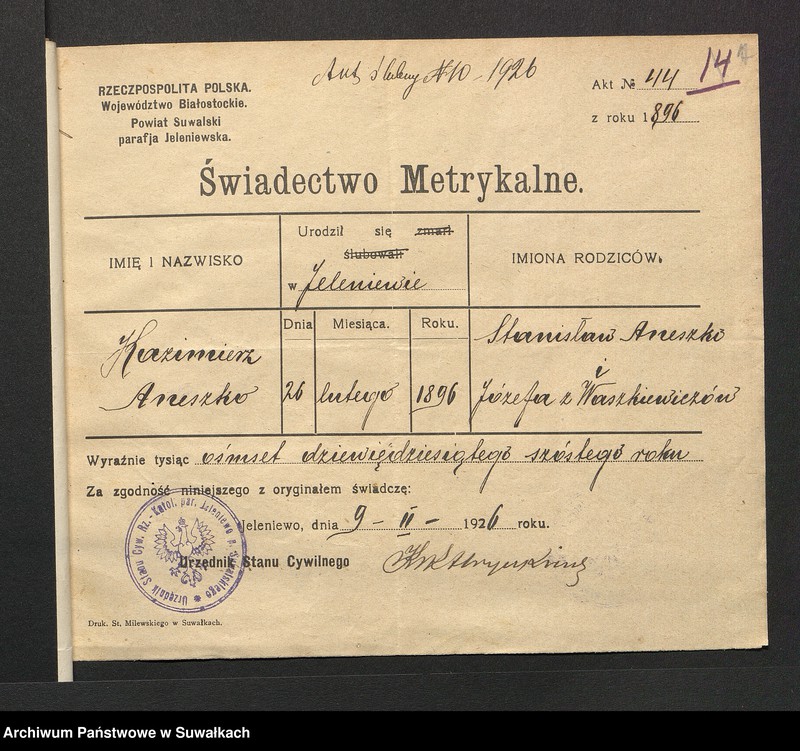 Akt ślubny № 10 - 1926
14
RZECZPOSPOLITA POLSKA.
Województwo Białostockie.
Powiat Suwalski
parafja Jeleniewska.
Akt № 44
z roku 1896
Świadectwo Metrykalne.
IMIĘ I NAZWISKO
Urodził się zmarł
ślubował
w Jeleniewie
IMIONA RODZICÓW.
Dnia Miesiąca. Roku.
Kazimierz
Aneszko
26 lutego 1896
Stanisław Aneszko
i
Józefa z Waszkiewiczów
Wyraźnie tysiąc ośmset dziewięćdziesiątego szóstego roku
Za zgodność niniejszego z oryginałem świadczę:
Jeleniewo, dnia 9 - II - 1926 roku.
Urzędnik Stanu Cywilnego
Urzędnik Stanu Cyw. Rz.-Katol. par. Jeleniewo
Druk. St. Milewskiego w Suwałkach.
Archiwum Państwowe w Suwałkach